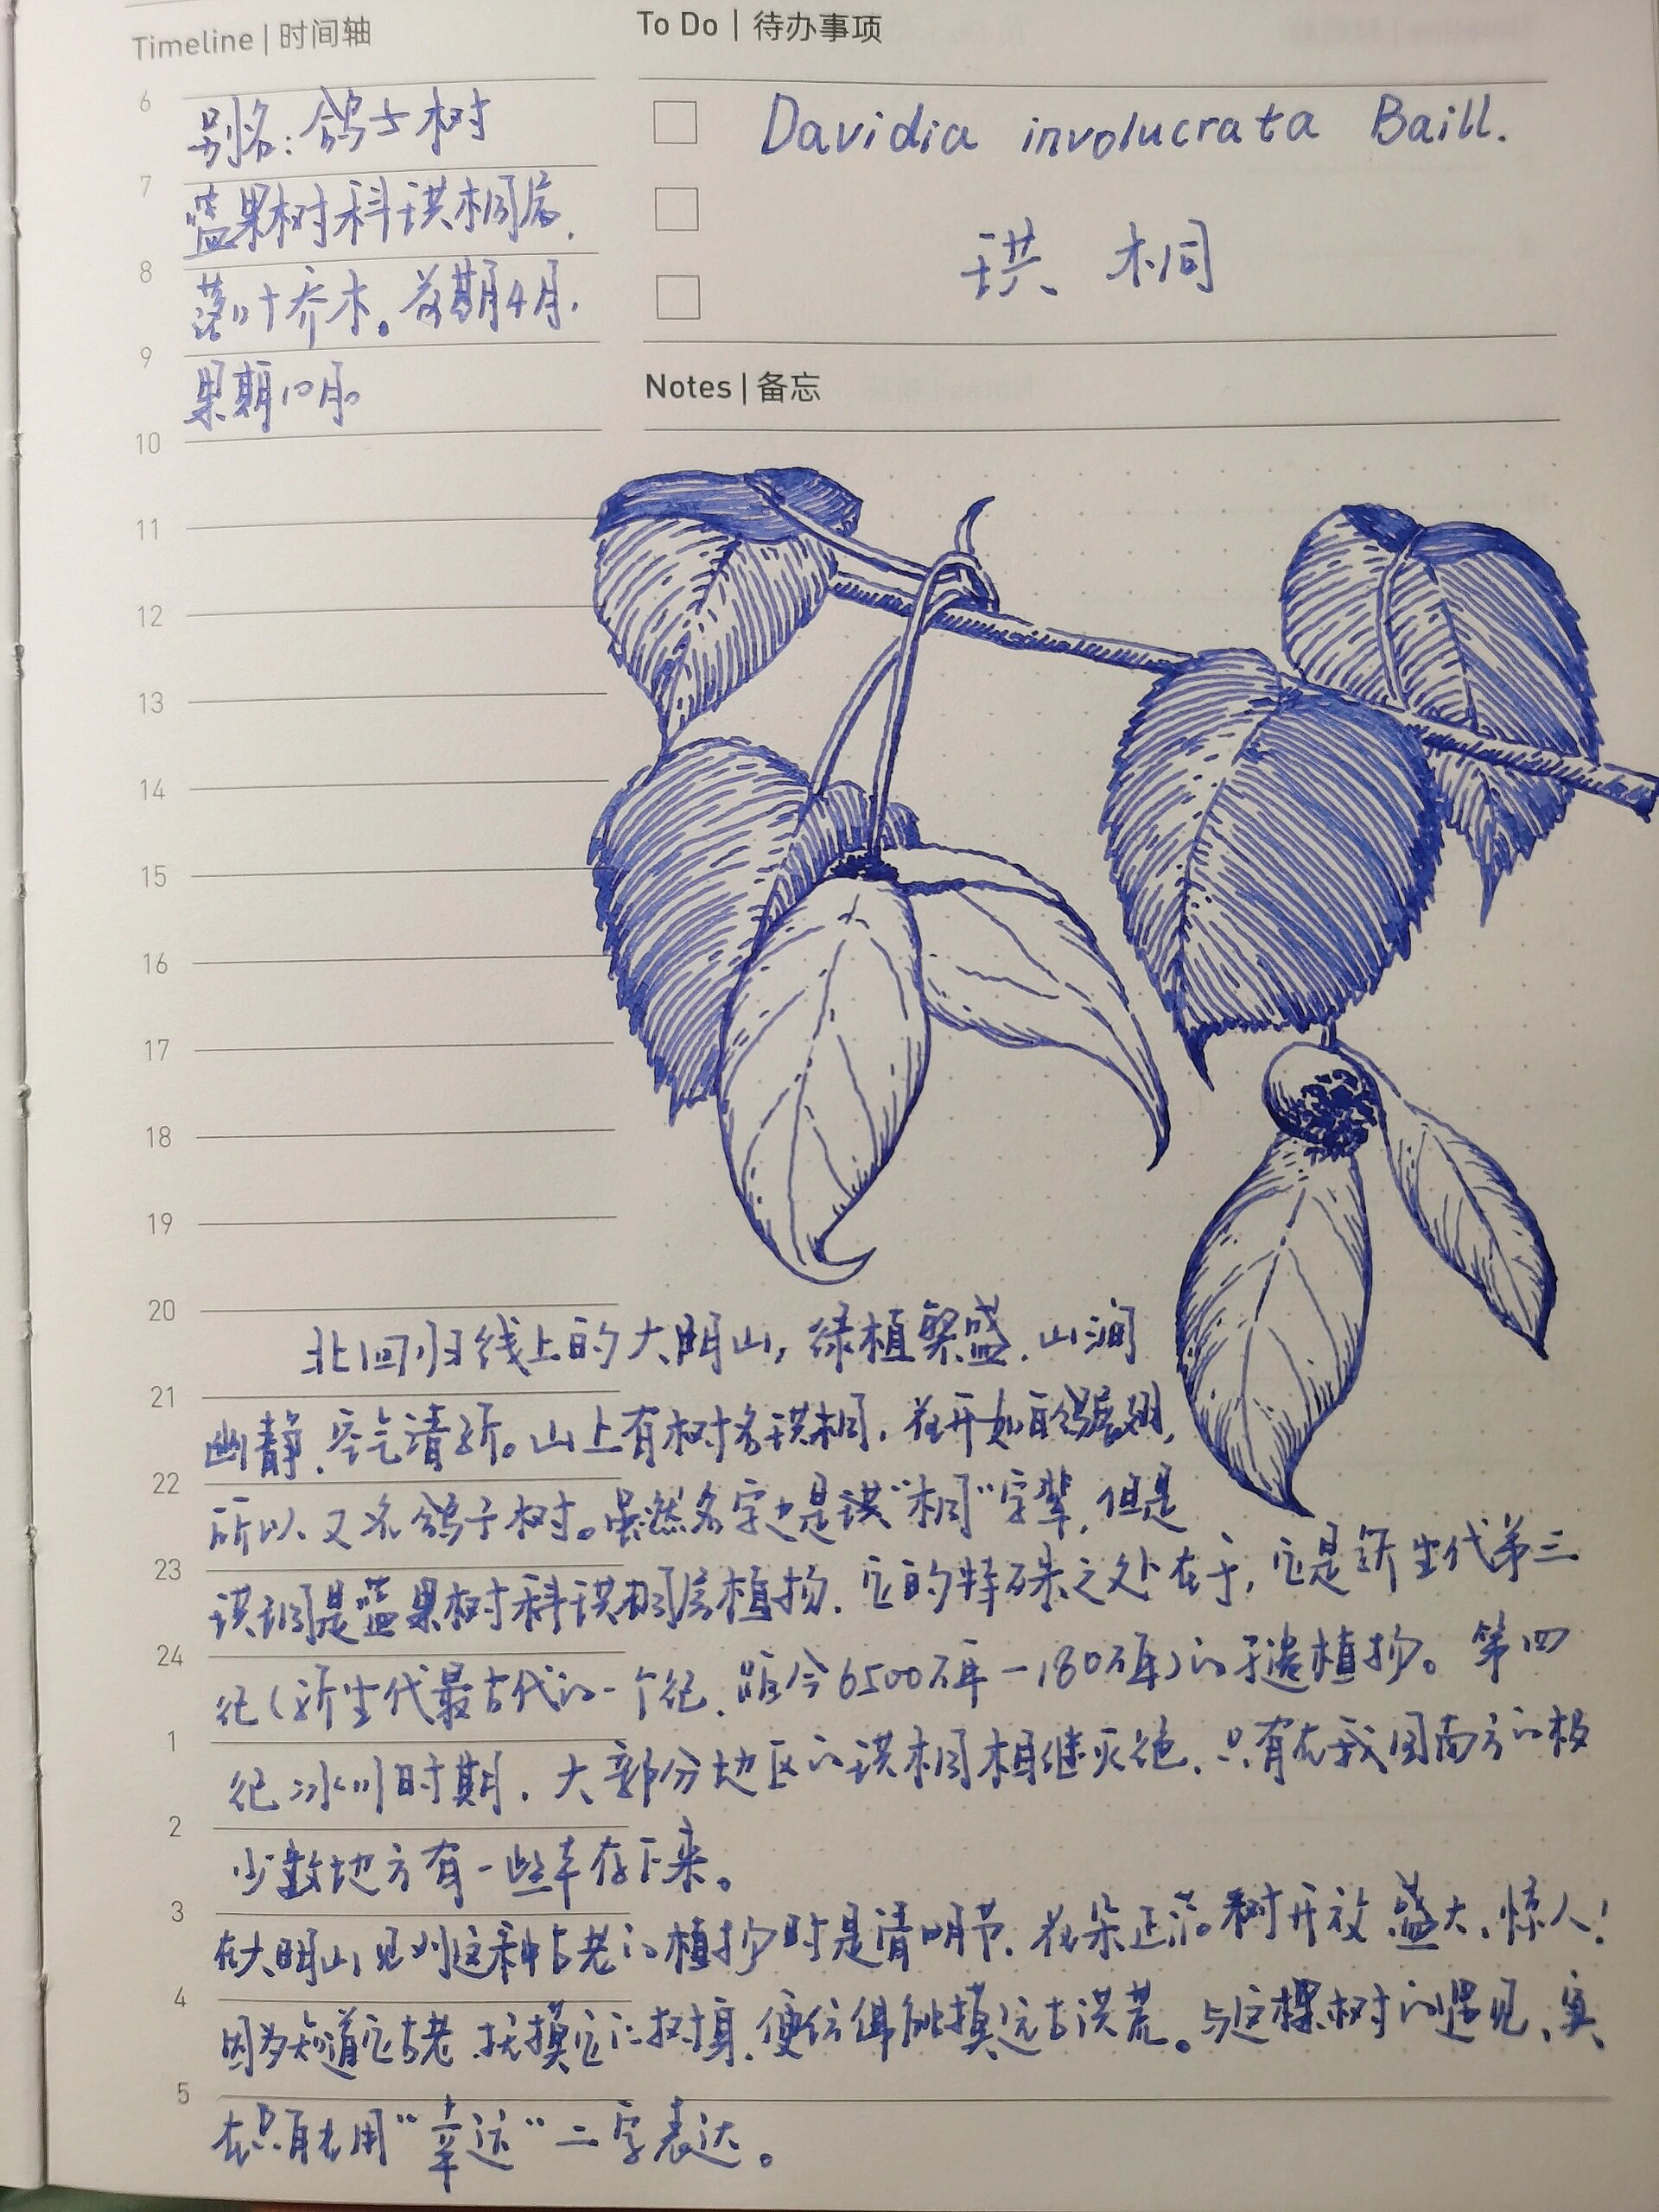 Timeline | 时间轴
To Do | 待办事项
6
别名:鸽子树
Davidia involucrata Baill.
7
蓝果树科珙桐属.
珙 桐
8
落叶乔木。花期4月.
9
果期10月。
Notes | 备忘
10
11
12
13
14
15
16
17
18
19
20
北回归线上的大明山,绿植繁盛.山涧
21
幽静.空气清新。山上有树名珙桐.花开如白鸽展翅,
22
所以又名鸽子树。虽然名字也是珙“桐”字辈,但是
23
珙桐是蓝果树科珙桐属植物.它的特殊之处在于,它是新生代第三
24
纪(新生代最古代的一个纪.距今6500万年-180万年)的孑遗植物。第四
1
纪冰川时期.大部分地区的珙桐相继灭绝.只有在我国南方的极
2
少数地方有一些幸存下来。
3
在大明山见到这种古老的植物时是清明节.花朵正满树开放 盛大、惊人!
4
因为知道它古老.抚摸它的树身.便仿佛触摸远古洪荒。与这棵树的遇见、实
5
在只有用“幸运”二字表达。